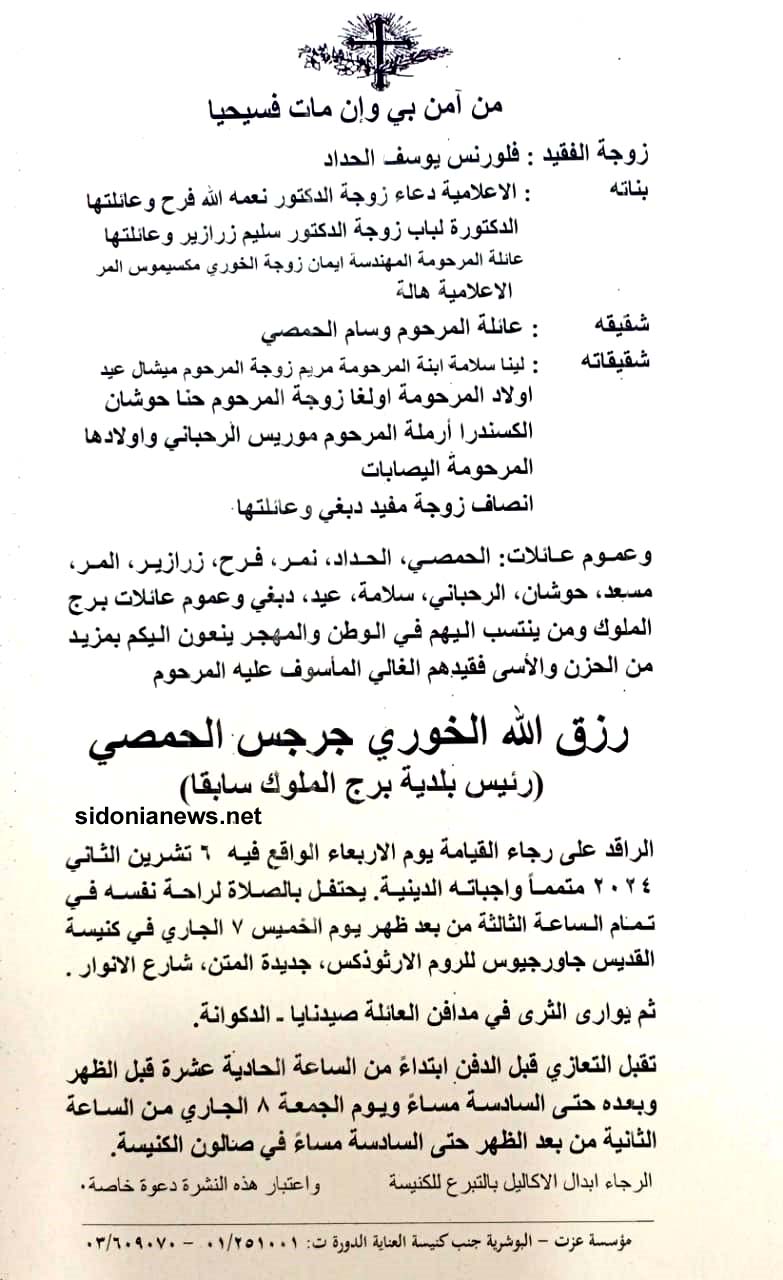 من آمن بي وإن مات فسيحيا
زوجة الفقيد : فلورنس يوسف الحداد
بناته : الاعلامية دعاء زوجة الدكتور نعمه الله فرح وعائلتها
الدكتورة لباب زوجة الدكتور سليم زرازير وعائلتها
عائلة المرحومة المهندسة ايمان زوجة الخوري مكسيموس المر
الاعلامية هالة
شقيقه : عائلة المرحوم وسام الحمصي
شقيقاته : لينا سلامة ابنة المرحومة مريم زوجة المرحوم ميشال عيد
اولاد المرحومة اولغا زوجة المرحوم حنا حوشان
الكسندرا أرملة المرحوم موريس الرحباني واولادها
المرحومة اليصابات
انصاف زوجة مفيد دبغي وعائلتها
وعموم عائلات: الحمصي، الحداد، نمر، فرح، زرازير، المر،
مسعد، حوشان، الرحباني، سلامة، عيد، دبغي وعموم عائلات برج
الملوك ومن ينتسب اليهم في الوطن والمهجر ينعون اليكم بمزيد
من الحزن والأسى فقيدهم الغالي المأسوف عليه المرحوم
رزق الله الخوري جرجس الحمصي
(رئيس بلدية برج الملوك سابقا)
sidonianews.net
الراقد على رجاء القيامة يوم الاربعاء الواقع فيه ٦ تشرين الثاني
٢٠٢٤ متمماً واجباته الدينية. يحتفل بالصلاة لراحة نفسه في
تمام الساعة الثالثة من بعد ظهر يوم الخميس ٧ الجاري في كنيسة
القديس جاورجيوس للروم الارثوذكس، جديدة المتن، شارع الانوار .
ثم يوارى الثرى في مدافن العائلة صيدنايا - الدكوانة.
تقبل التعازي قبل الدفن ابتداءً من الساعة الحادية عشرة قبل الظهر
وبعده حتى السادسة مساءً ويوم الجمعة ٨ الجاري من الساعة
الثانية من بعد الظهر حتى السادسة مساءً في صالون الكنيسة.
الرجاء ابدال الاكاليل بالتبرع للكنيسة واعتبار هذه النشرة دعوة خاصة.
مؤسسة عزت - البوشرية جنب كنيسة العناية الدورة ت: ٠١/٢٥١٠٠١ - ٠٣/٦٠٩٠٧٠